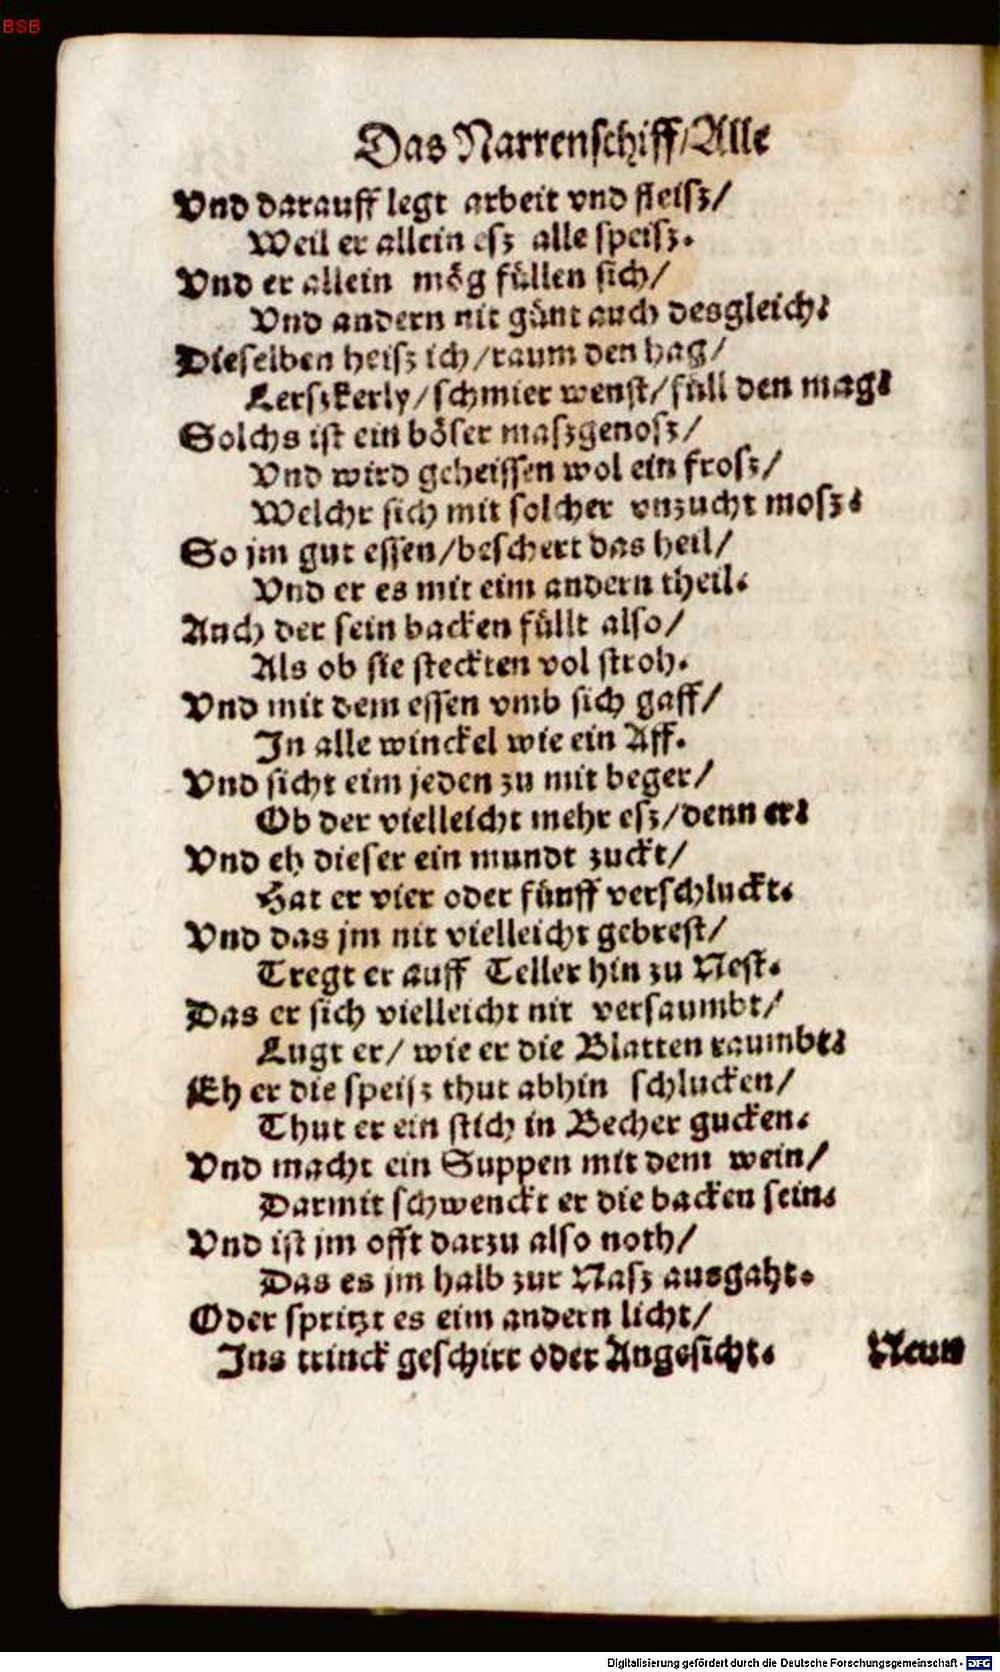 BSB
Das Narrenschiff/Alle
Vnd darauff legt arbeit vnd fleisz/
Weil er allein esz alle speisz.
Vnd er allein mög füllen sich/
Vnd andern nit günt auch desgleich.
Dieselben heisz ich/raum den hag/
Lerszkerly/schmier wenst/füll den mag.
Solchs ist ein böser maszgenosz/
Vnd wird geheissen wol ein frosz/
Welchr sich mit solcher vnzucht mosz.
So jm gut essen/beschert das heil/
Vnd er es mit eim andern theil.
Auch der sein backen füllt also/
Als ob sie steckten vol stroh.
Vnd mit dem essen vmb sich gaff/
In alle winckel wie ein Aff.
Vnd sicht eim jeden zu mit beger/
Ob der vielleicht mehr esz/denn er.
Vnd eh dieser ein mundt zuckt/
Hat er vier oder fünff verschluckt.
Vnd das jm nit vielleicht gebrest/
Tregt er auff Teller hin zu Nest.
Das er sich vielleicht nit versaumbt/
Lugt er/ wie er die Blatten raumbt.
Eh er die speisz thut abhin schlucken/
Thut er ein stich in Becher gucken.
Vnd macht ein Suppen mit dem wein/
Darmit schwenckt er die backen sein.
Vnd ist jm offt darzu also noth/
Das es jm halb zur Nasz ausgaht.
Oder spritzt es eim andern licht/
Ins trinck geschirr oder Angesicht. Neun
Digitalisierung gefördert durch die Deutsche Forschungsgemeinschaft - DFG